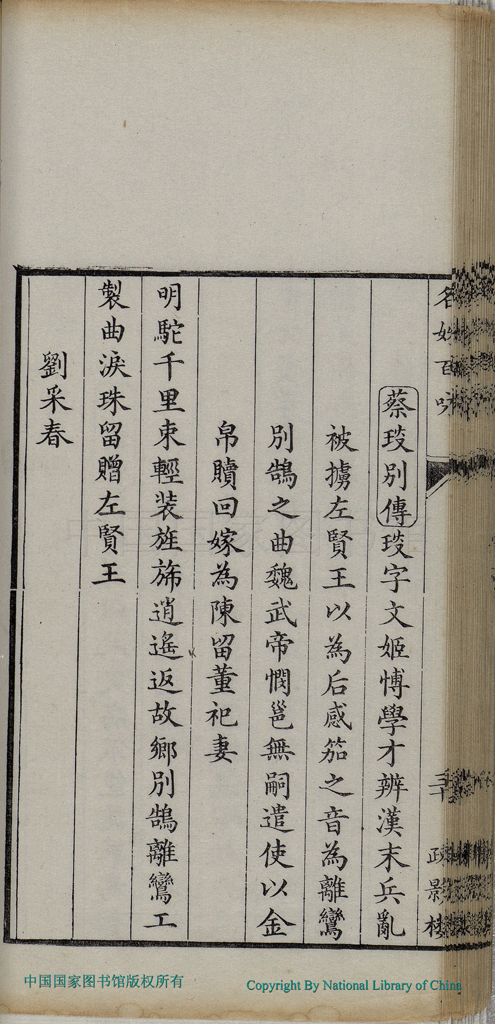 蔡琰別傳琰字文姬博學才辨漢末兵亂
被擄左賢王以為后感笳之音為離鸞
別鵠之曲魏武帝憫邕無嗣遣使以金
帛贖回嫁為陳留董祀妻
明駝千里束輕装旌旆逍遙返故鄉別鵠離鸞工
製曲淚珠留贈左賢王
劉采春
中国国家图书馆版权所有
Copyright By National Library of China